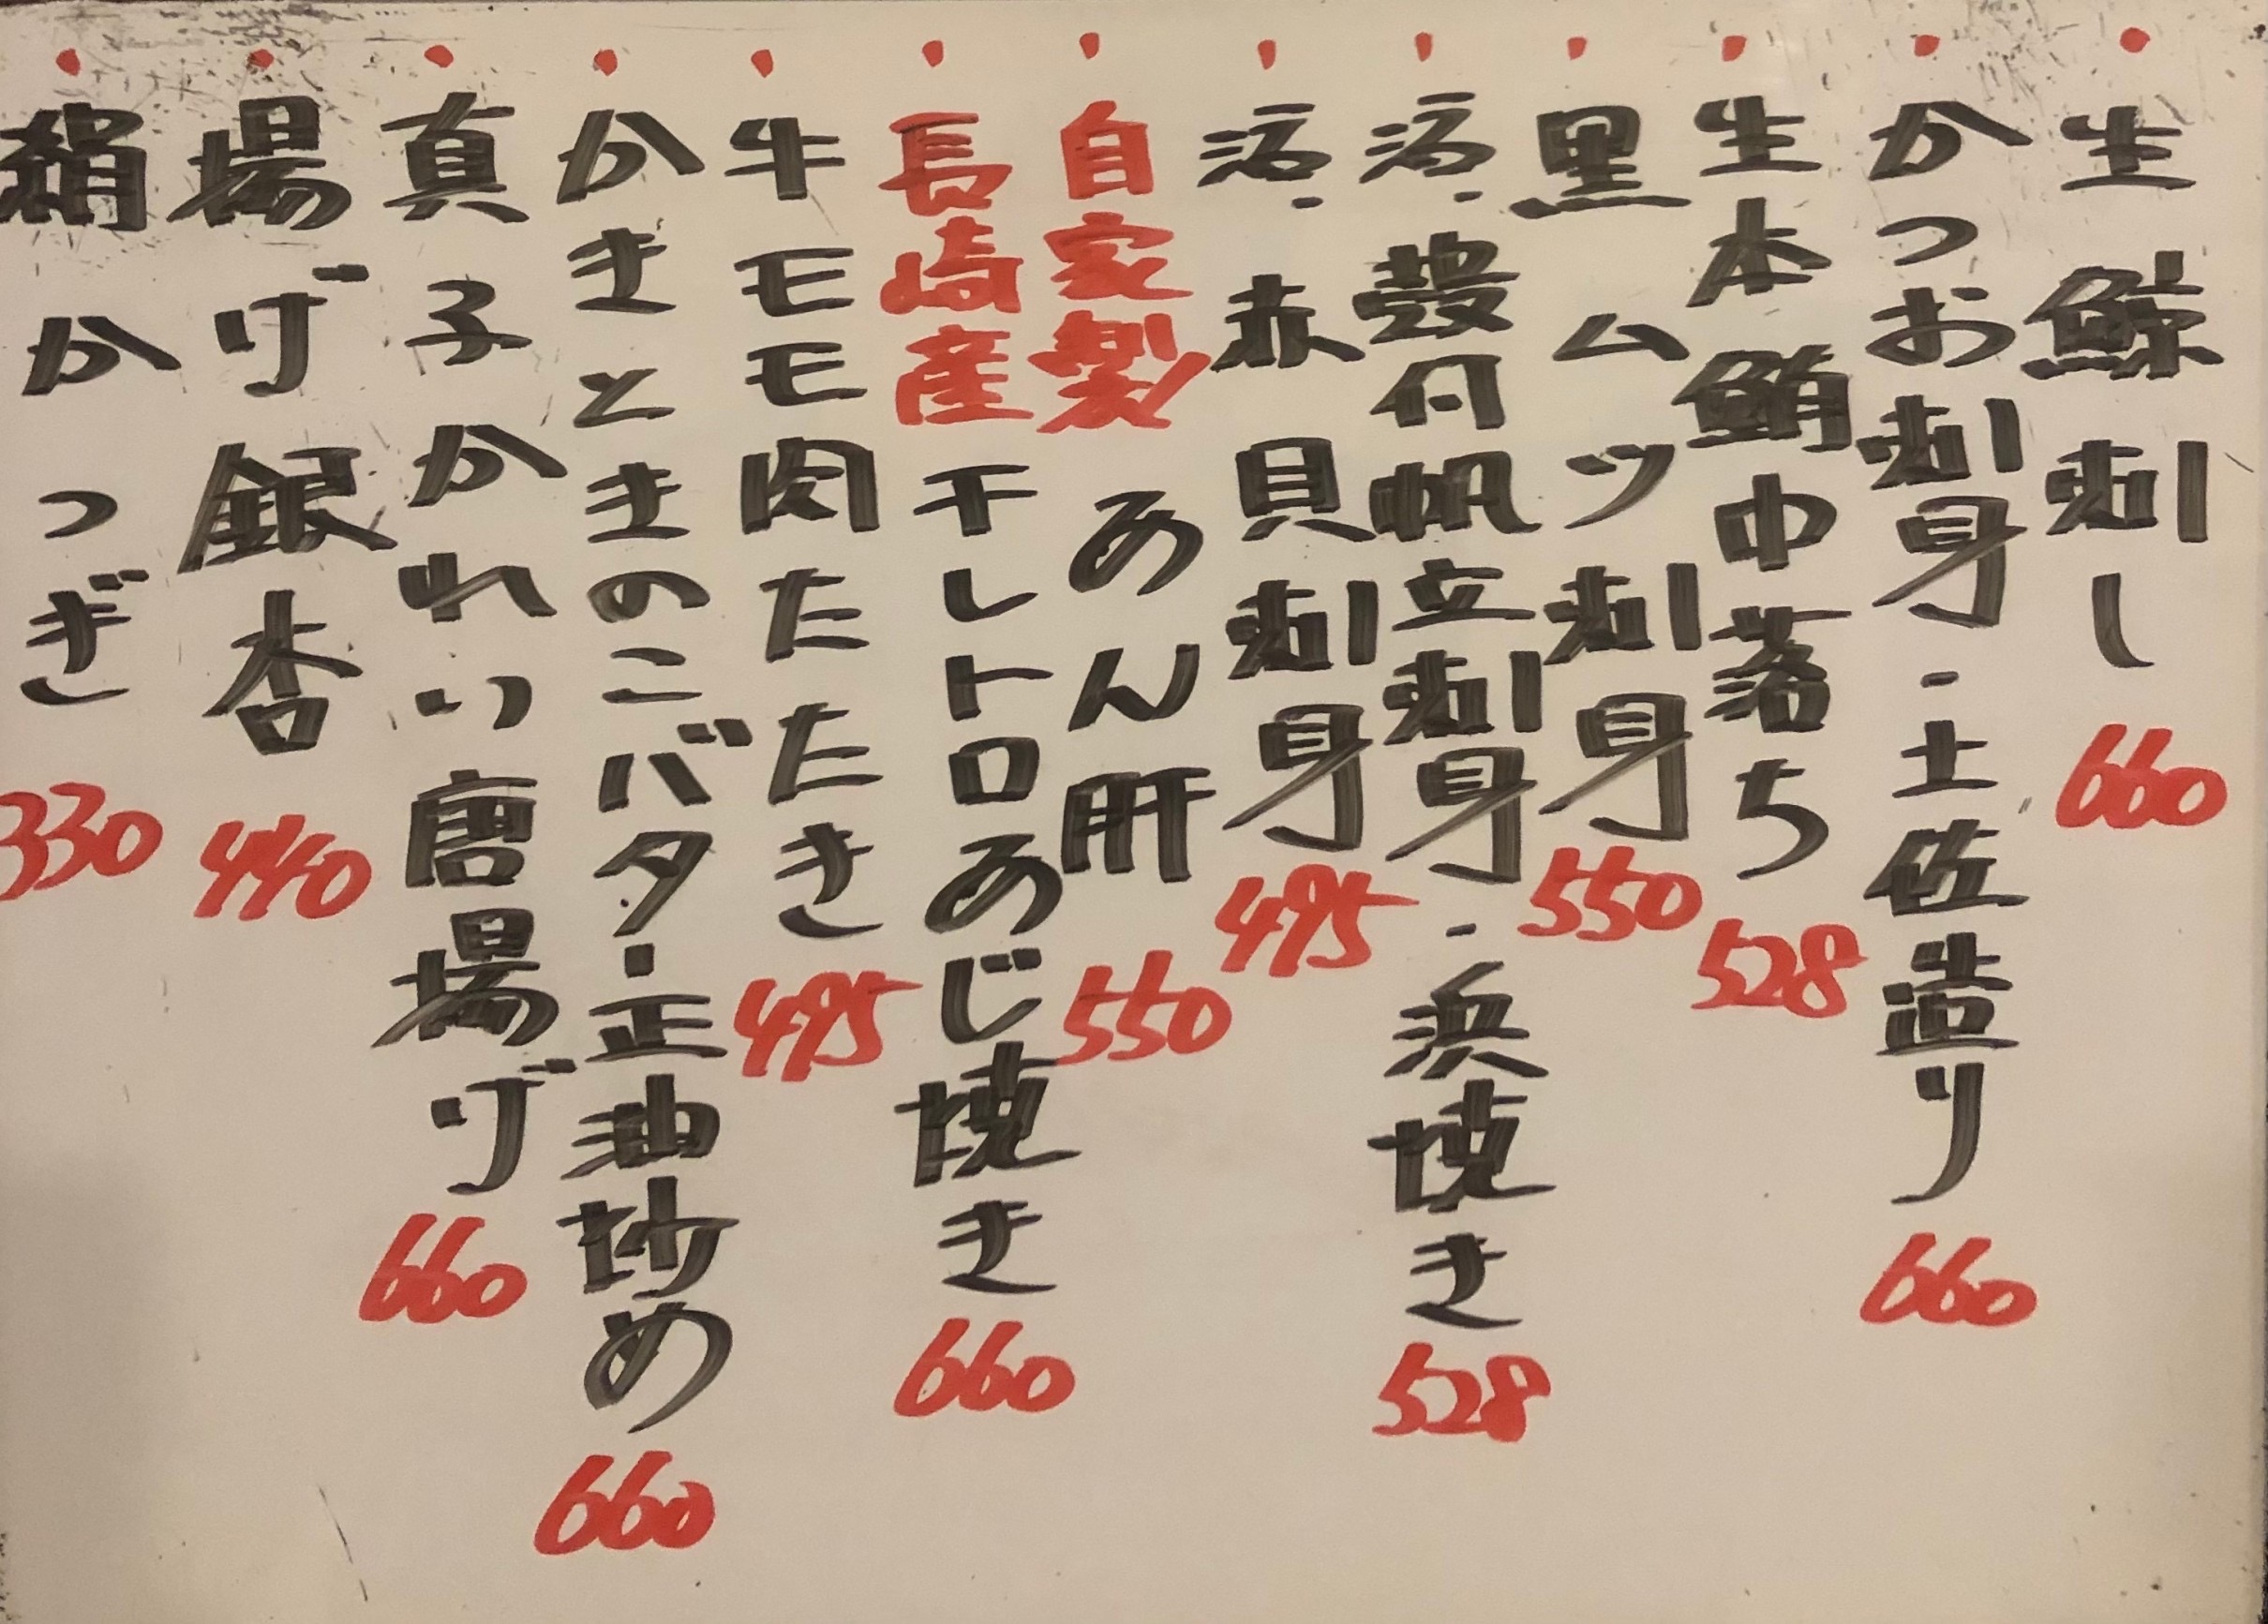 ・生鯨刺し 660
・かつお刺身・土佐造り 660
・生本鮪中落ち 528
・黒ムツ刺身 550
・活・殻付帆立刺身・浜焼き 528
・活・赤貝刺身 495
・自家製 あん肝 550
・長崎産 干しトロあじ焼き 660
・牛モモ肉たたき 495
・かきときのこバター正油炒め 660
・真子かれい唐揚げ 660
・揚げ銀杏 440
・絹かつぎ 330